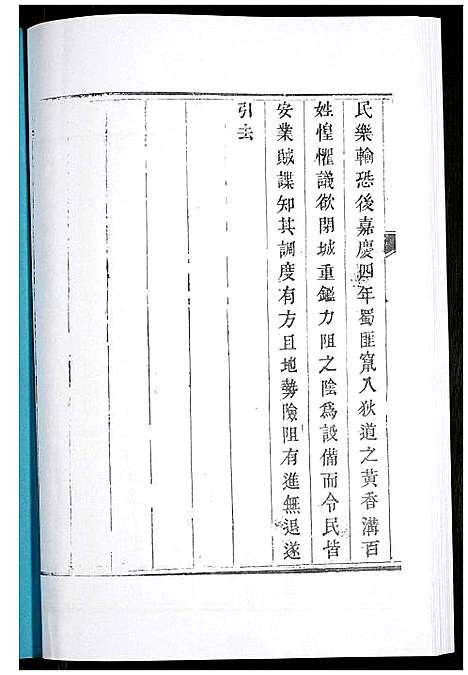 民樂輸恐後嘉慶四年蜀匪竄入狄道之黃香溝百
姓惶懼議欲閉城重鑑力阻之陰為設備而令民皆
安業賊諜知其調度有方且地勢險阻有進無退遂
引去